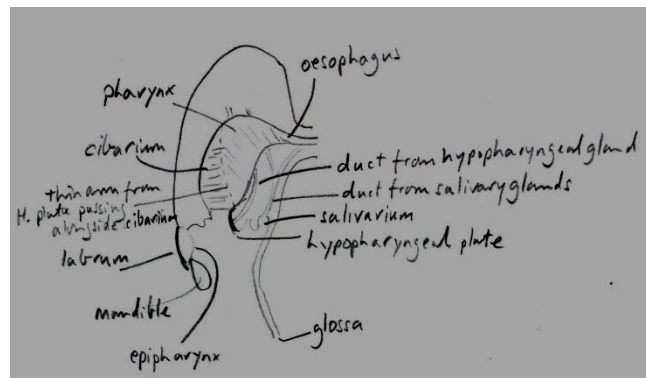 oesophagus
pharynx
cibarium
thin arm from
H. plate passing
alongside cibarium
labrum
mandible
epipharynx
duct from hypopharyngeal gland
duct from salivary glands
salivarium
hypopharyngeal plate
glossa